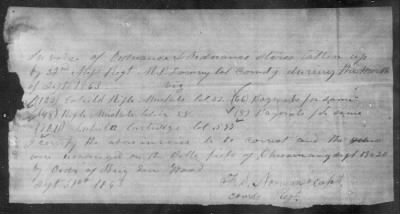 Invoice of Ordnance & Ordnance Stores taken up
by 32nd Miss Regt M.P. Lowrey Col comdg during the Month
of Sept 1863 viz
(122) Enfield Rifle Muskets Cal 57. (66) Bayonets for same
(48) Rifle Muskets Cal 58 (8) Bayonets for same
Enfield Cartridges Cal 577
I certify the above invoice to be correct and the same
were on the Battle field of Chicamauga Sept 19 & 20
by order of Brig Gen Wood
Sept 1863
Capt
comdg Regt